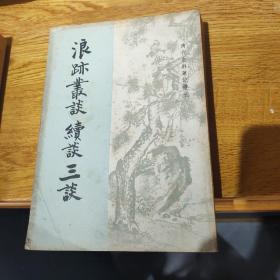 浪跡叢談 續談 三談
清代史料筆記叢刊